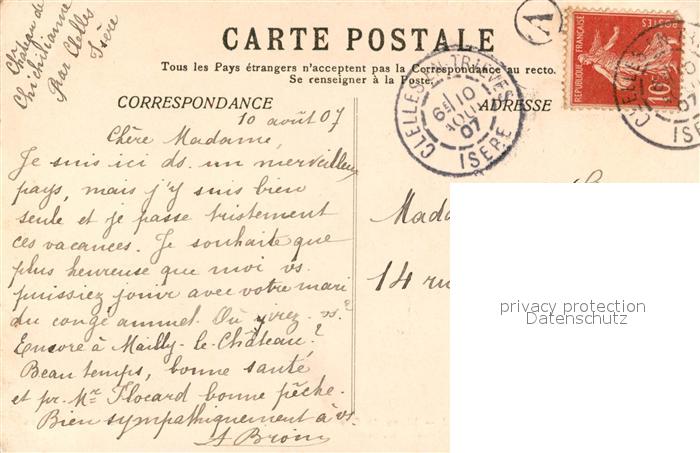 Château de
Chichilianne
Par Clelles
Isère
CARTE POSTALE
Tous les Pays étrangers n'acceptent pas la Correspondance au recto.
Se renseigner à la Poste.
CORRESPONDANCE
ADRESSE
A
REPUBLIQUE FRANÇAISE
POSTES
10
CLELLES-EN-TRIEVES
6E 10
AOUT
07
ISERE
CLELLES
ISERE
10 août 07
Chère Madame,
Je suis ici ds. un merveilleux
pays, mais j'y suis bien
seule et je passe tristement
ces vacances. Je souhaite que
plus heureuse que moi vs.
puissiez jouir avec votre mari
du congé annuel. Où irez-vs.?
Encore à Mailly-le-Château?
Beau temps, bonne santé
et pr. Mr Flocard bonne pêche.
Bien sympathiquement à vs.
Mada
14 ru
privacy protection
Datenschutz